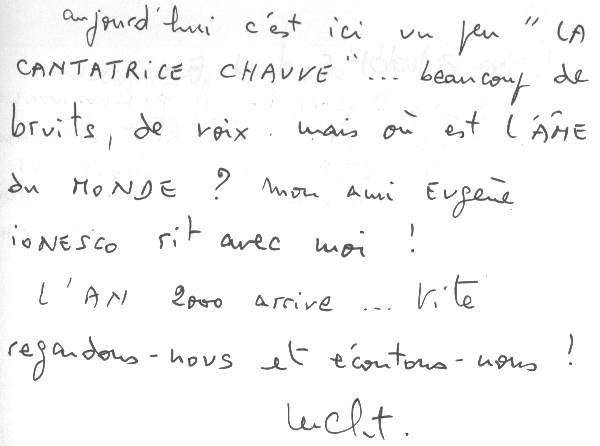 aujourd'hui c'est ici un peu "LA
CANTATRICE CHAUVE"... beaucoup de
bruits, de voix. mais où est L'ÂME
du MONDE ? mon ami EUgène
iONESCO rit avec moi !
L'AN 2000 arrive ... Vite
regardons-nous et écoutons-nous !